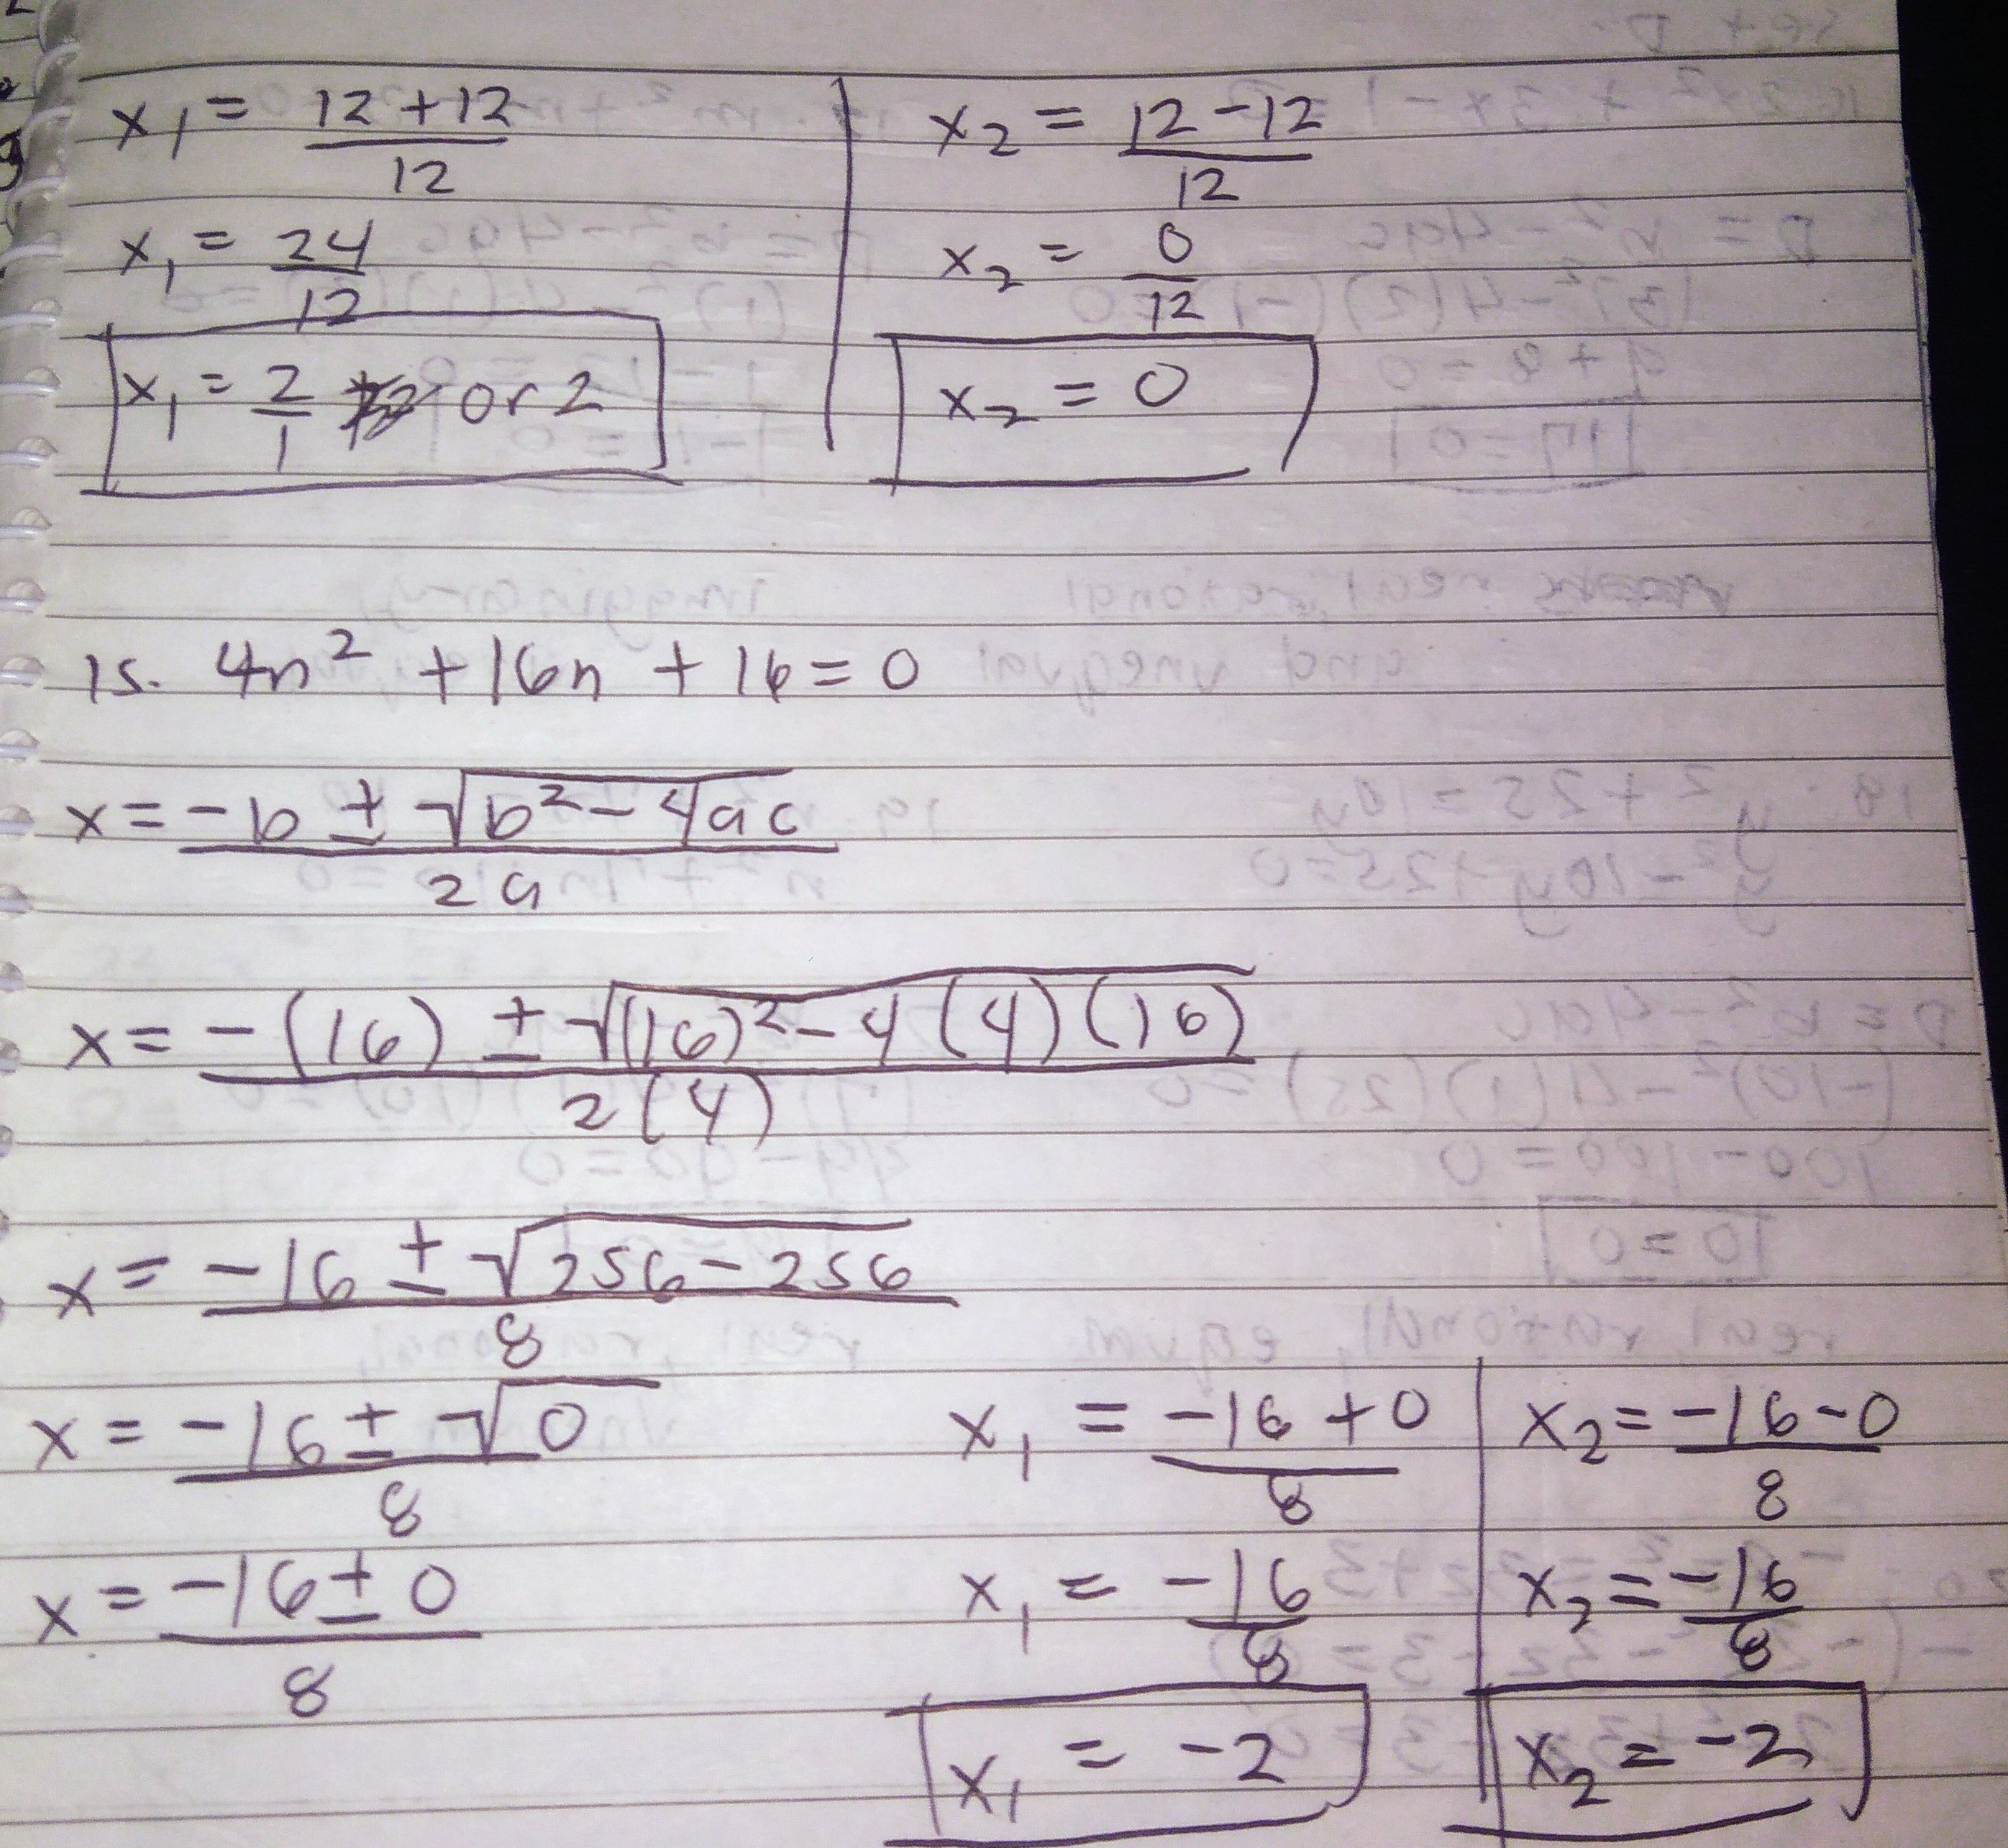 x₁ = 12 + 12 / 12
x₁ = 24 / 12
x₁ = 2 / 1 or 2
x₂ = 12 - 12 / 12
x₂ = 0 / 12
x₂ = 0
15. 4n² + 16n + 16 = 0
x = -b ± √b² - 4ac / 2a
x = -(16) ± √(16)² - 4(4)(16) / 2(4)
x = -16 ± √256 - 256 / 8
x = -16 ± √0 / 8
x = -16 ± 0 / 8
x₁ = -16 + 0 / 8
x₁ = -16 / 8
x₁ = -2
x₂ = -16 - 0 / 8
x₂ = -16 / 8
x₂ = -2